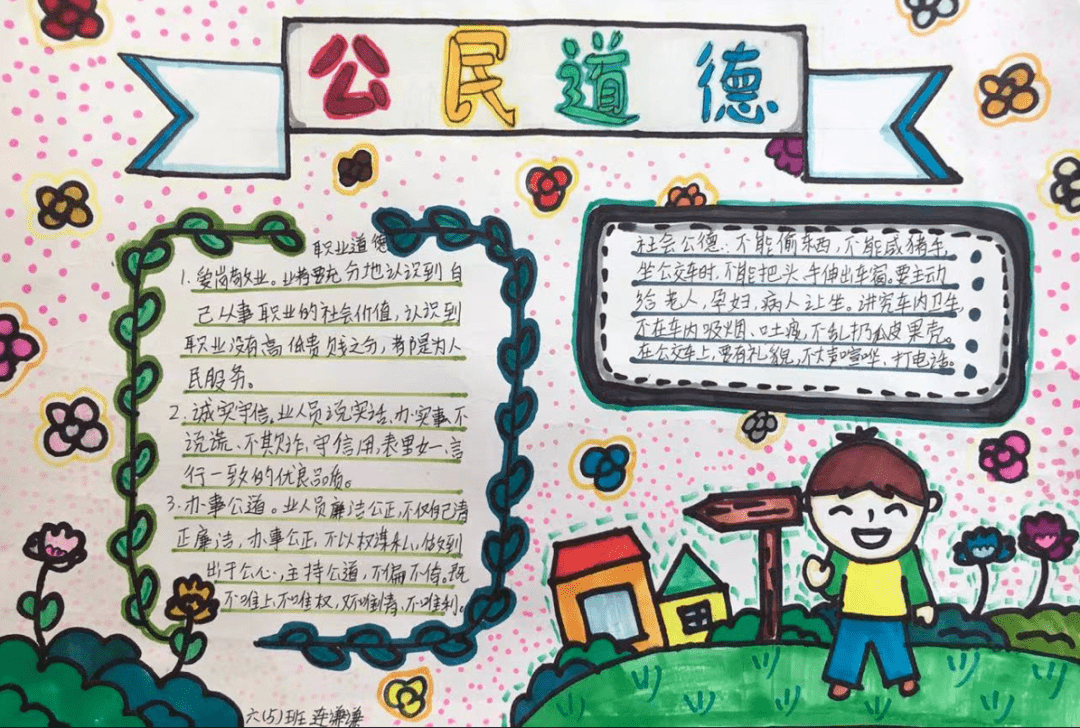 公民道德
职业道德
1. 爱岗敬业。业者要充分地认识到自
己从事职业的社会价值，认识到
职业没有高低贵贱之分，都是为人
民服务。
2. 诚实守信。业人员说实话、办实事、不
说谎、不欺诈、守信用，表里如一、言
行一致的优良品质。
3. 办事公道。业人员廉洁公正，不仅自己清
正廉洁，办事公正，不以权谋私，做到
出于公心、主持公道，不偏不倚。既
不唯上、不唯权，又不唯情，不唯利。
社会公德：不能偷东西，不能咸猪手，
坐公交车时，不能把头、手伸出车窗。要主动
给老人，孕妇、病人让坐。讲究车内卫生，
不在车内吸烟、吐痰，不乱扔瓜皮果壳。
在公交车上，要有礼貌，不大声喧哗、打电话。
六(5)班 连谦谦